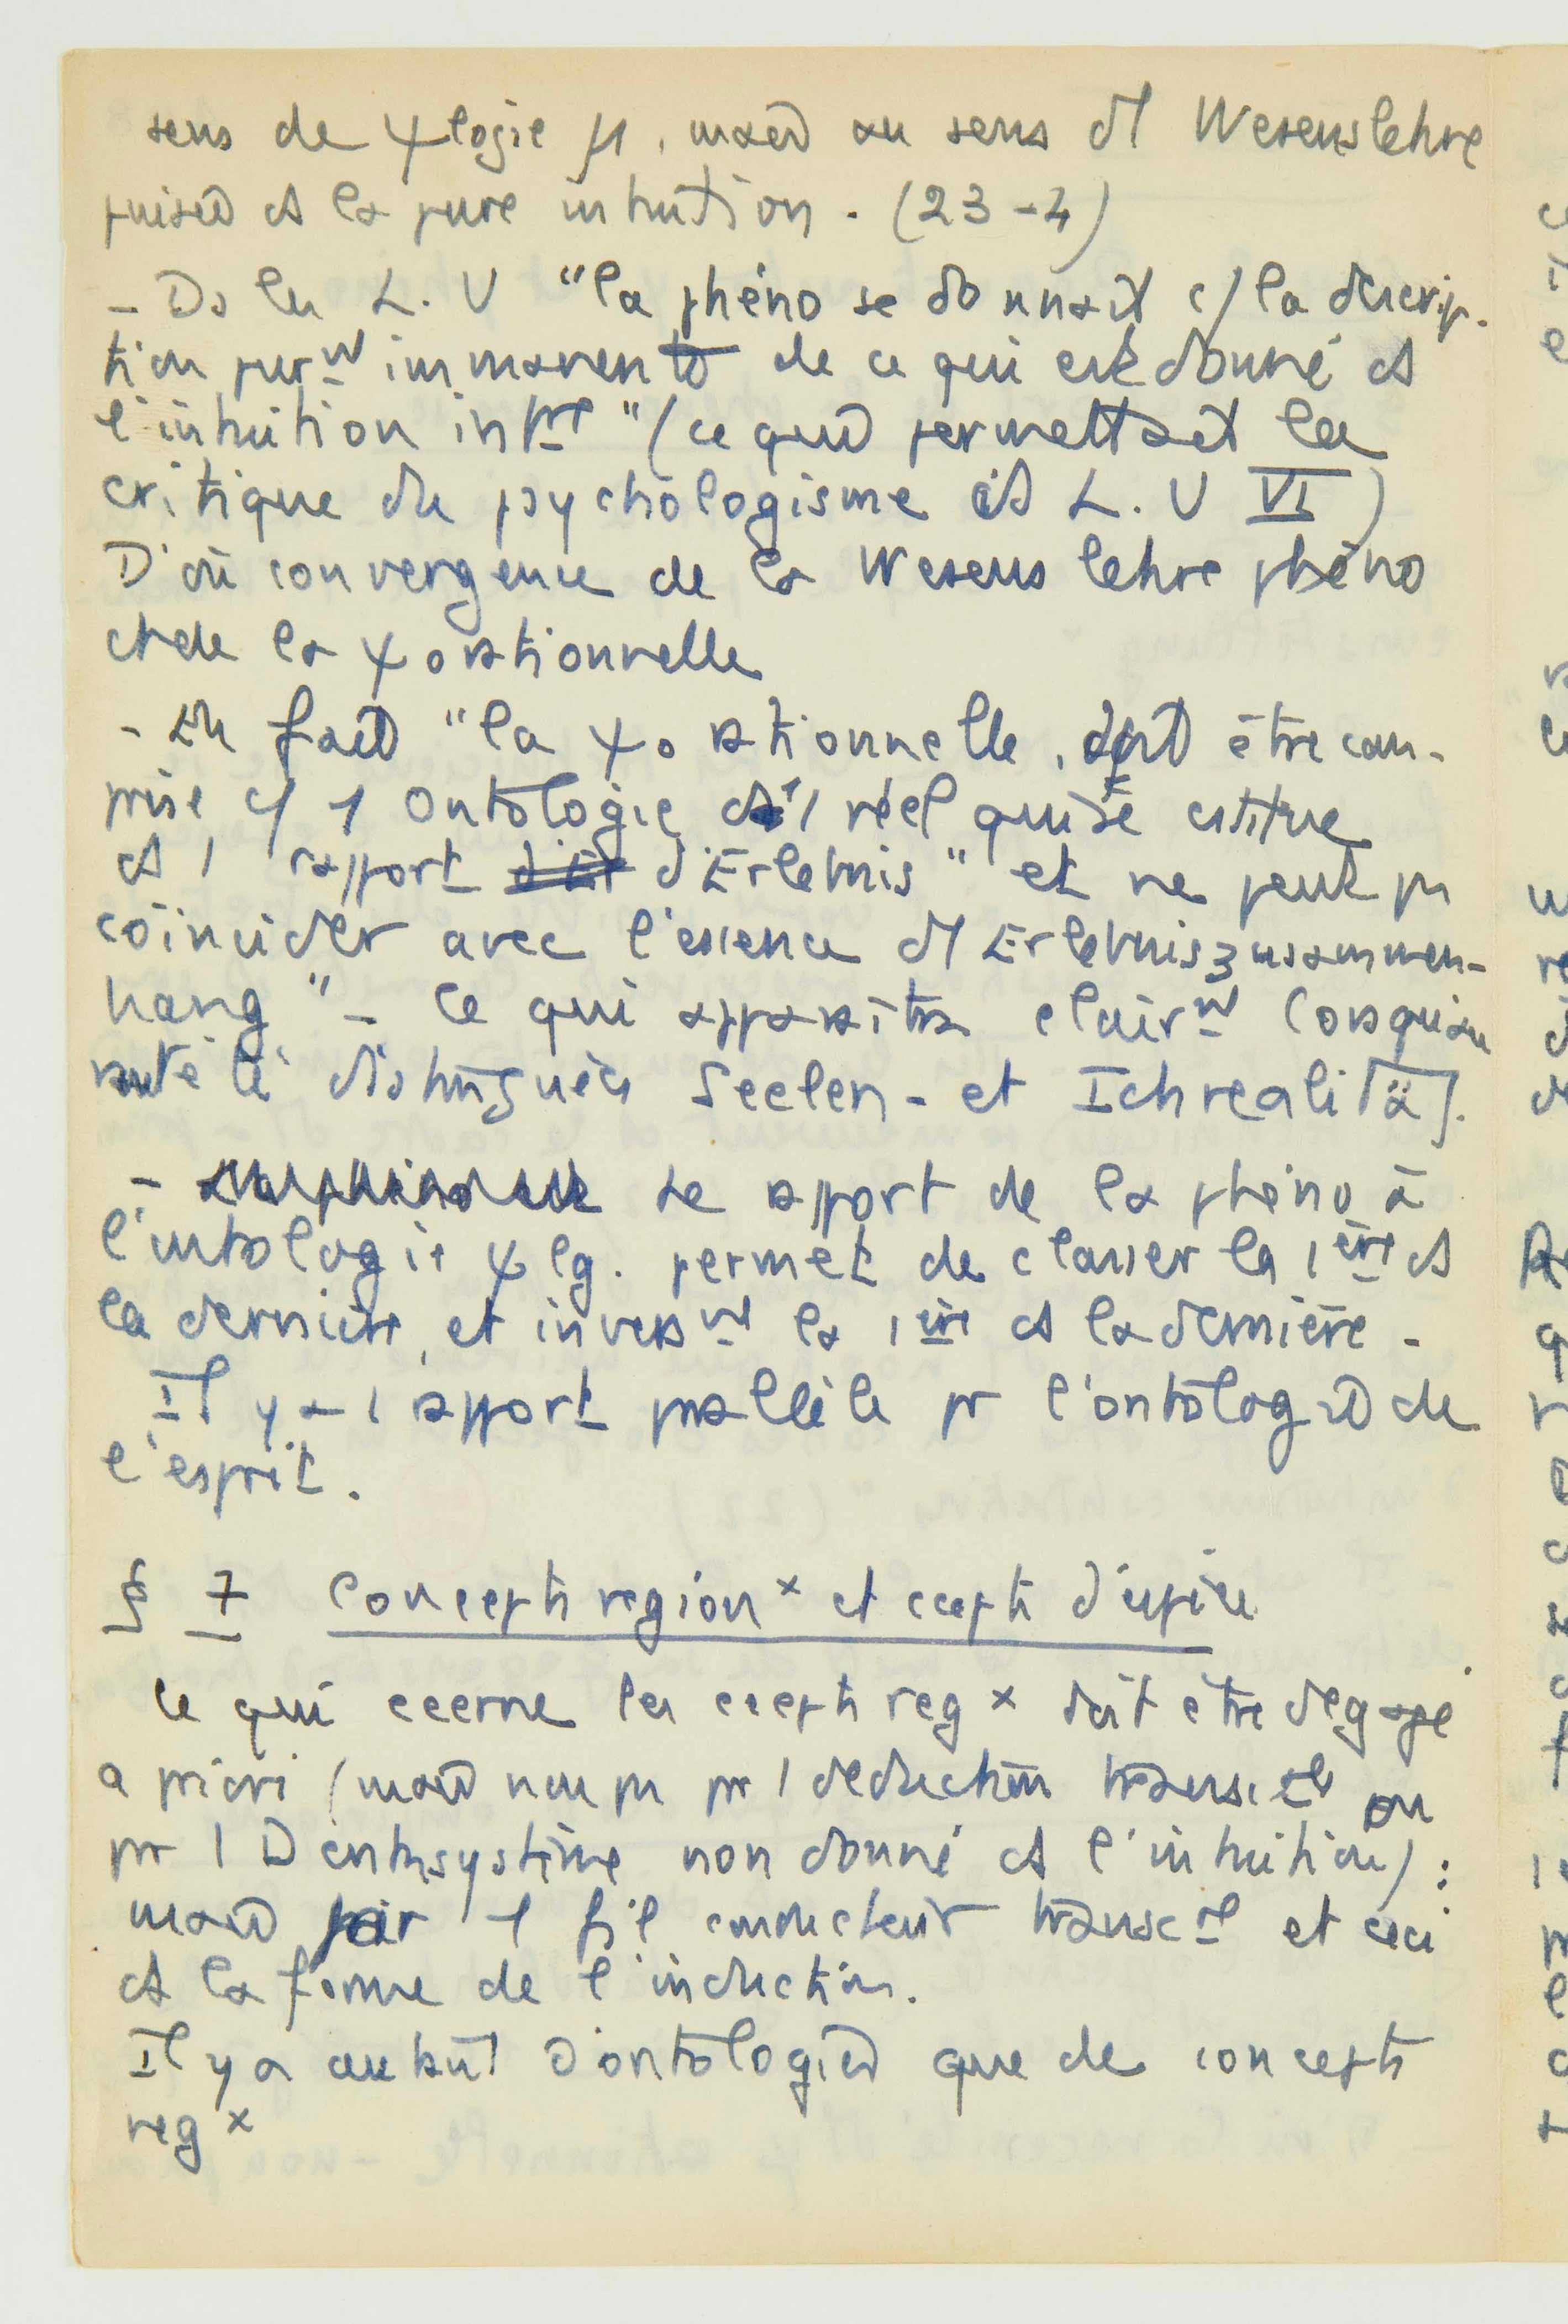 sens de ψlogie pure, mais au sens d'1 Wesenslehre
puisée ds la pure intuition. (23-4)
- Ds les L.U "la phéno se donnait c/ la descrip-
tion purnt immanente de ce qui est donné ds
l'intuition intre" (ce qui permettait la
critique du psychologisme ds L.U VI)
D'où convergence de la Wesenslehre phéno
et de la ψ rationnelle
- En fait "la ψ rationnelle doit être com-
prise c/ 1 Ontologie d'1 réel qui se cstitue
ds 1 rapport d'Erlebnis" et ne peut pas
coïncider avec l'essence d'1 Erlebniszusammen-
hang" - Ce qui apparaîtra clairnt lorsqu'on
aura été distinguées Seelen- et Ichrealität.
- Le rapport de la phéno à
l'ontologie ψlg. permet de classer la 1ère ds
la dernière, et inversnt la 1ère ds la dernière.
Il y a 1 rapport parallèle pr l'ontologie de
l'esprit.
§ 7 Concepts region x et ccepts d'espèce
Ce qui ccerne les ccepts reg x doit être dégagé
a priori (mais non pas par 1 déduction transcale ou
par 1 Denksystème non donné ds l'intuition) :
mais par 1 fil conducteur transcal et ceci
ds la forme de l'induction.
Il y a autant d'ontologies que de concepts
reg x